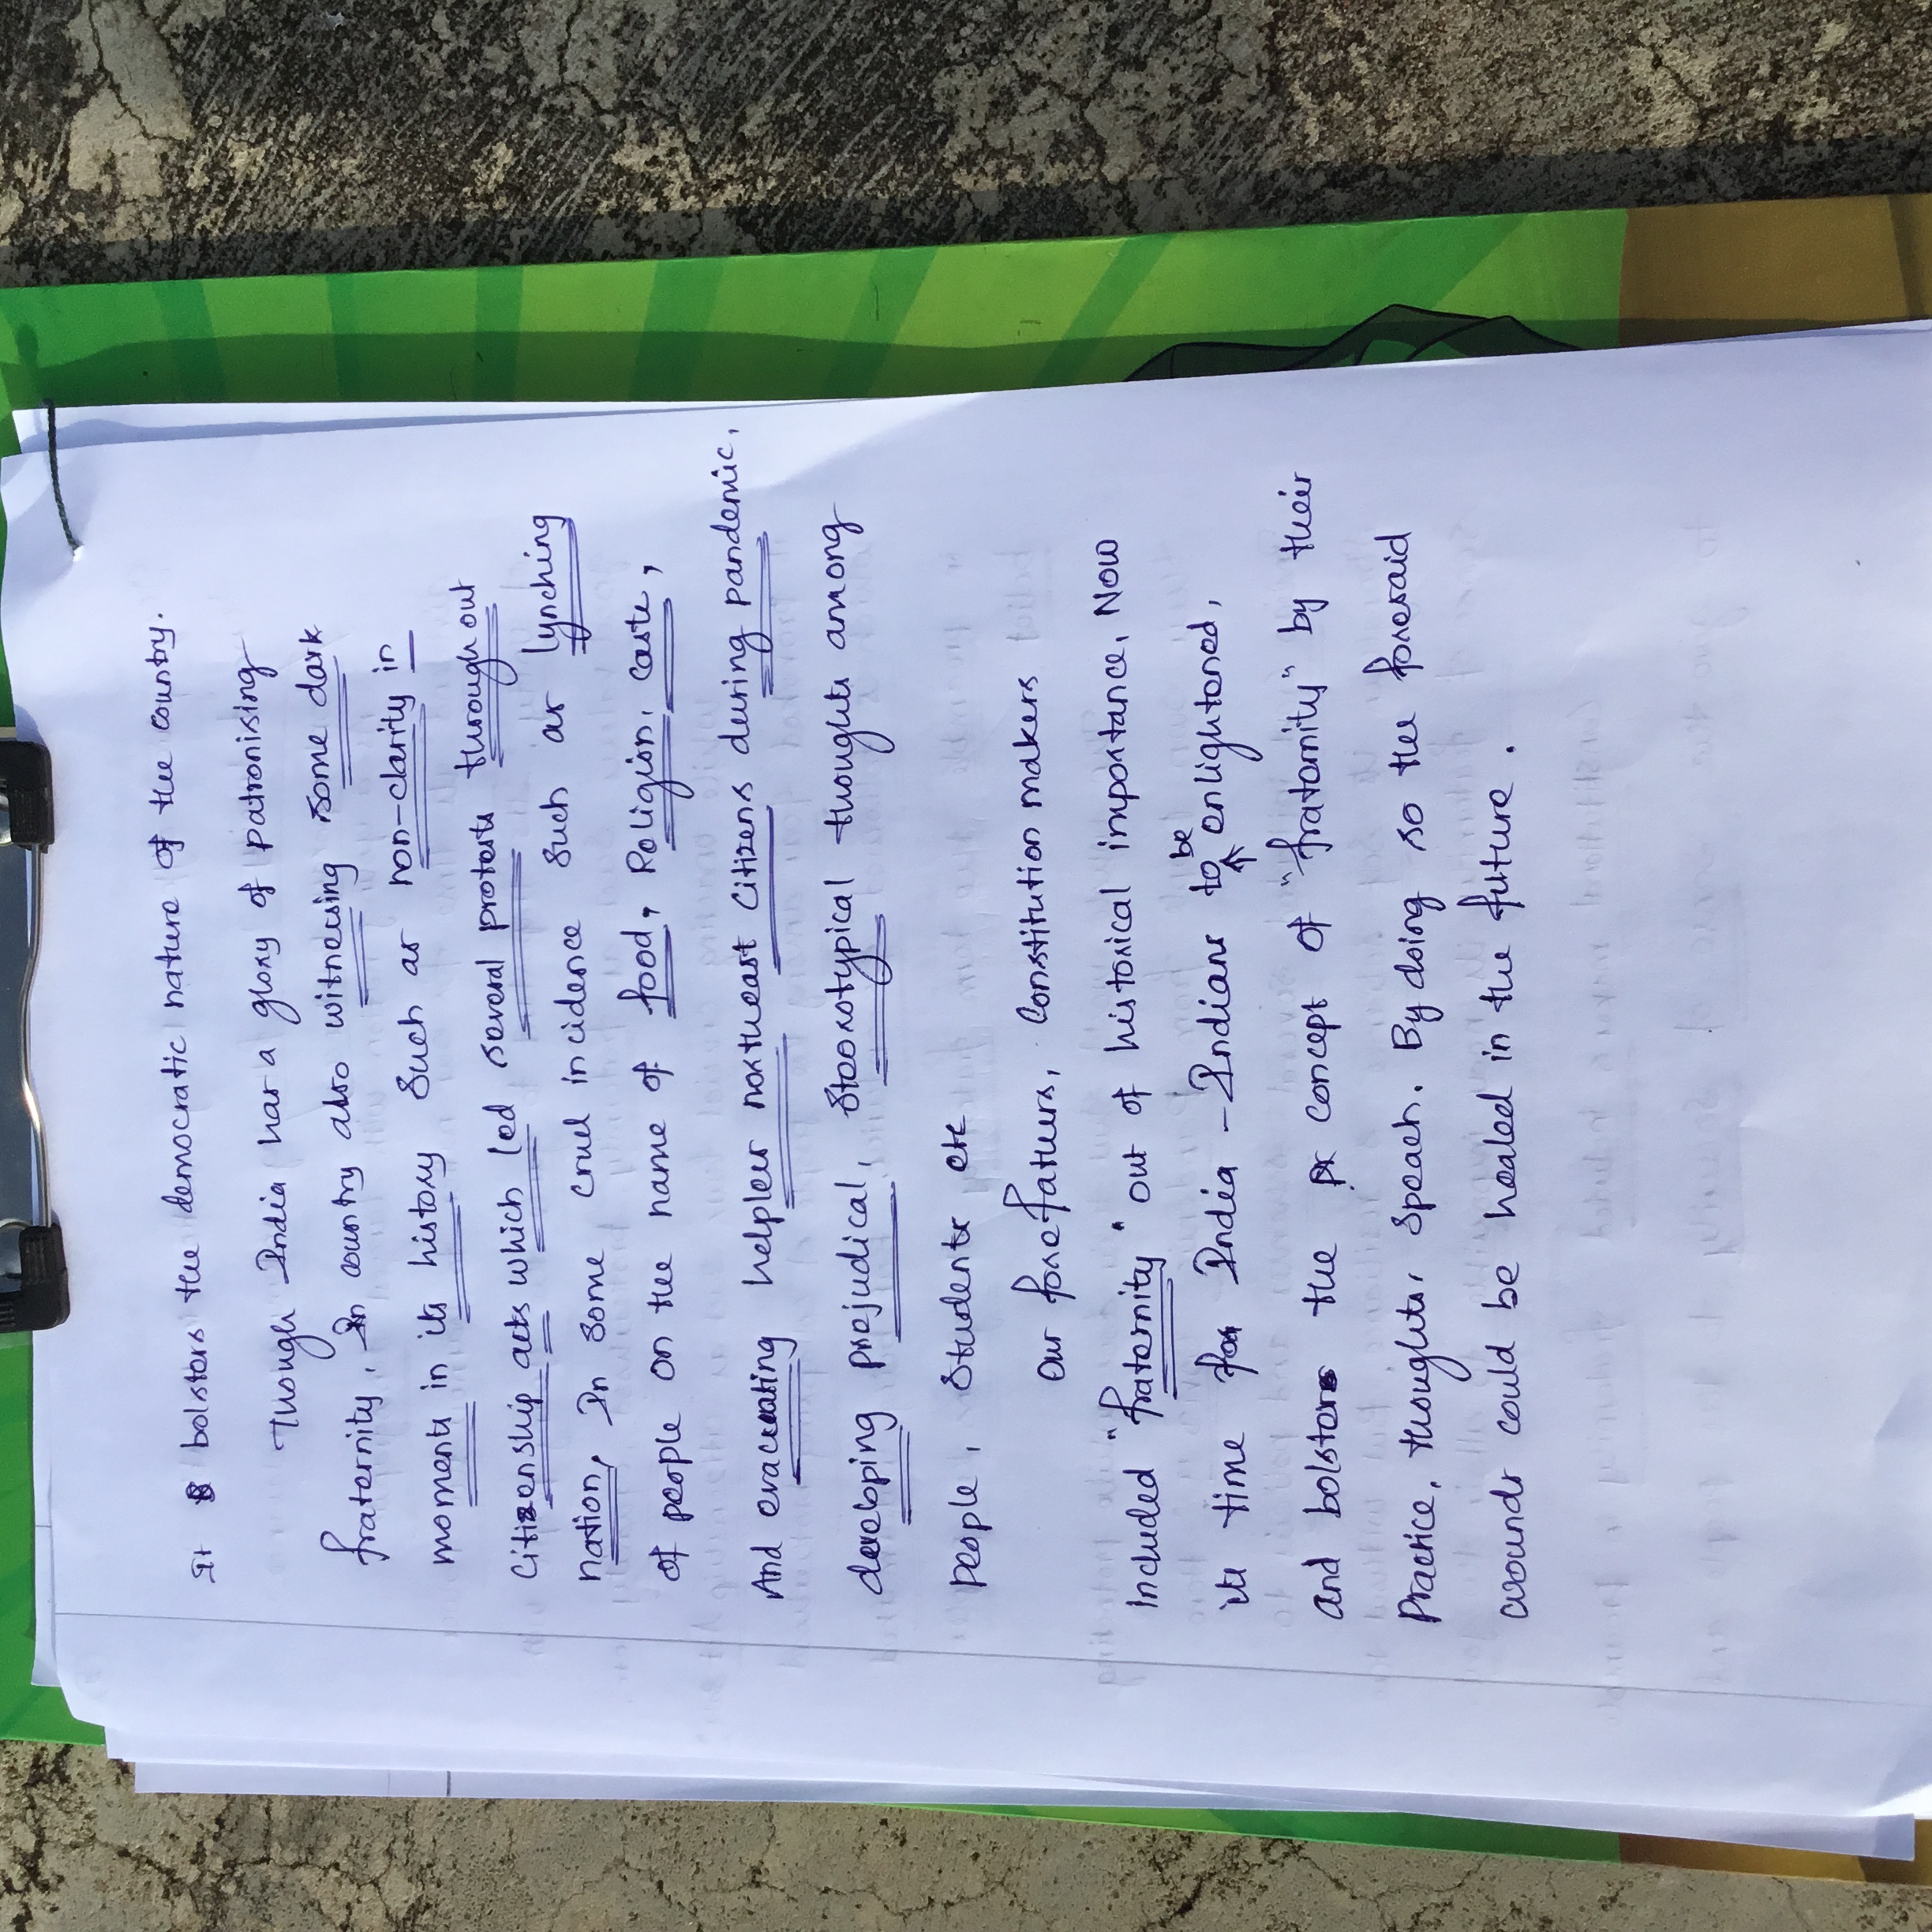 It bolsters the democratic nature of the country.
Though India has a glory of patronising
fraternity, In country also witnessing some dark
moments in its history such as non-clarity in
Citizenship acts which led several protests through out
nation, In some cruel incidence such as lynching
of people on the name of food, Religion, caste,
And evacuating helpless northeast citizens during pandemic,
developing prejudical, Stereotypical thoughts among
people, students etc
Our forefathers, Constitution makers
included "fraternity" out of historical importance, Now
its time for India - Indians to be enlightened,
and bolsters the concept of "fraternity" by their
Practice, thoughts, Speach. By doing so the foresaid
wounds could be healed in the future.